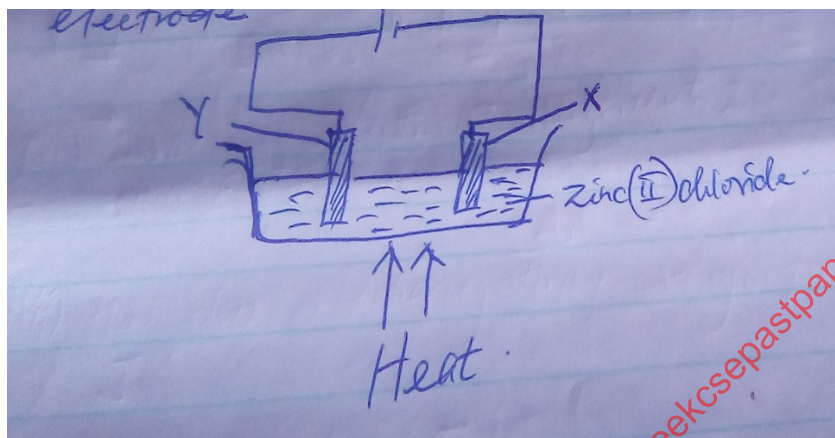 electrode
Y
X
Zinc(II)chloride.
Heat.
eekcsepastpap